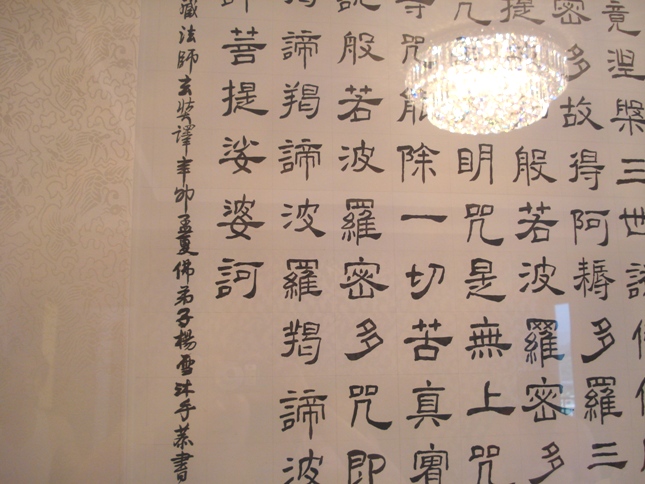 竟涅槃三世諸
密多故得阿耨多羅三
提般若波羅密多
咒明咒是無上咒
等咒能除一切苦真實
說般若波羅密多咒即
羯諦羯諦波羅羯諦波
諦菩提娑婆訶
藏法師玄奘譯辛卯孟夏佛弟子楊雪沐手恭書